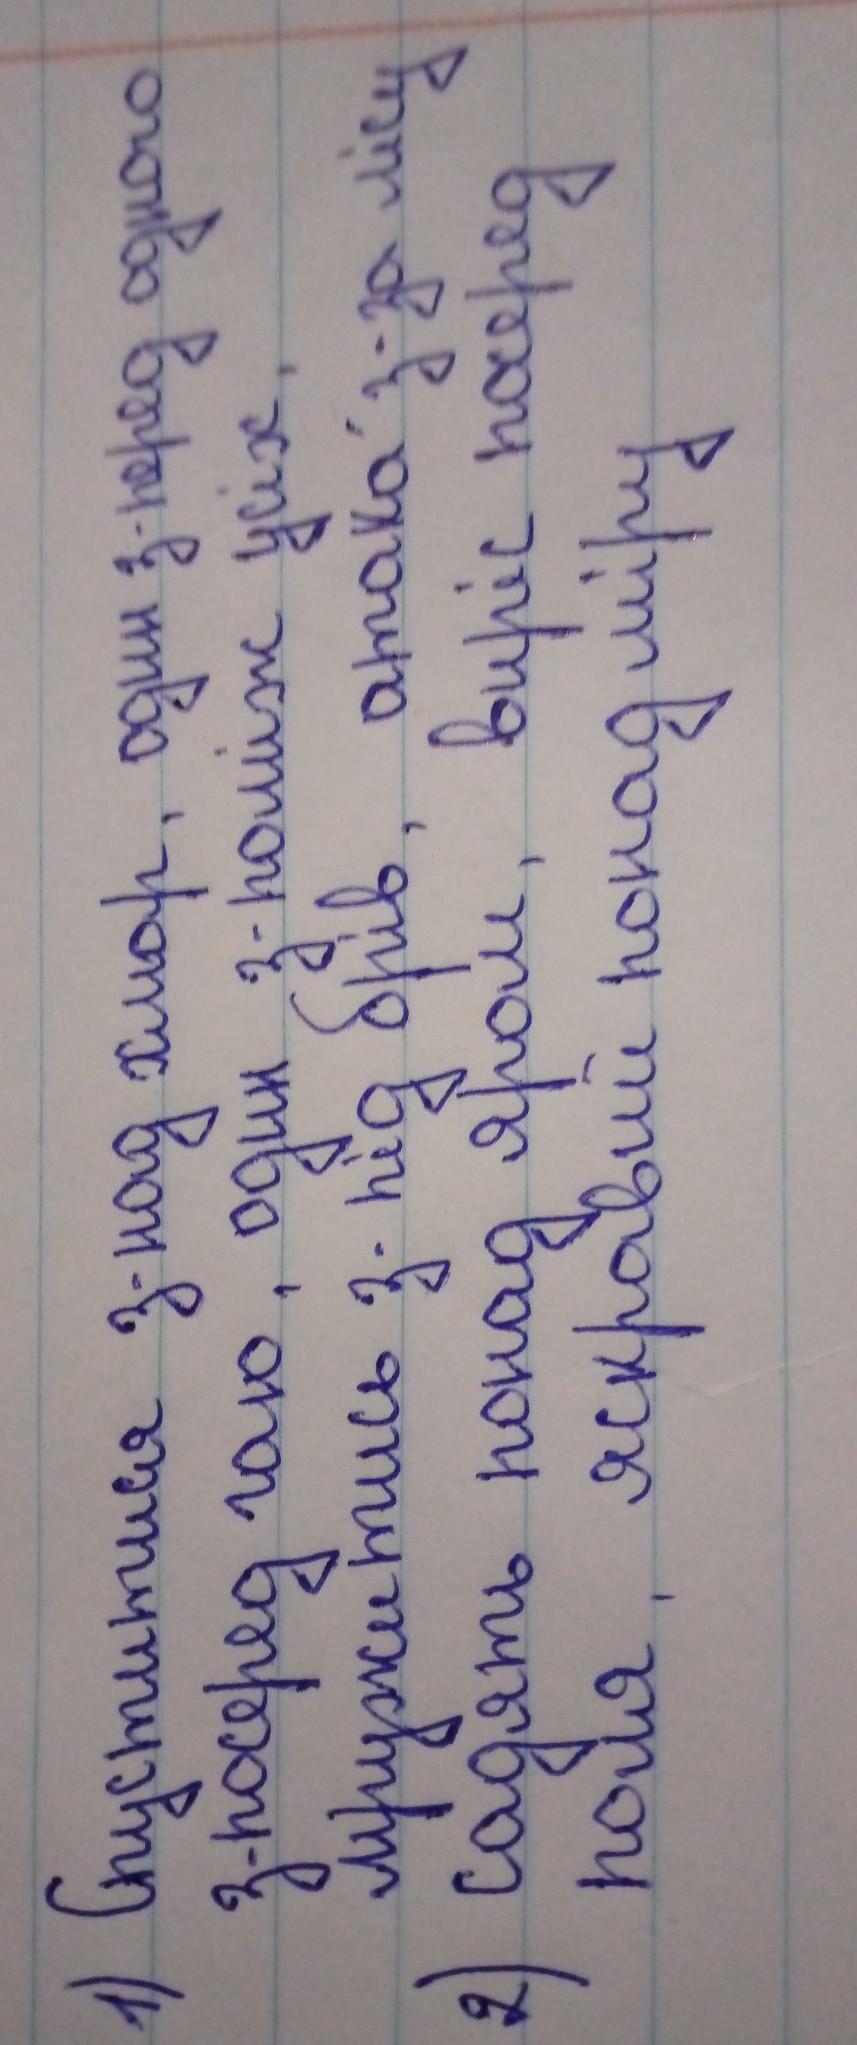 1) Спуститися з-над хмар, один з-перед одного
з-посеред гаю, один з-поміж усіх,
мружитись з-під брів, атака з-за лісу
2) Садять понад яром, виріс посеред
поля, яскравий понад міру